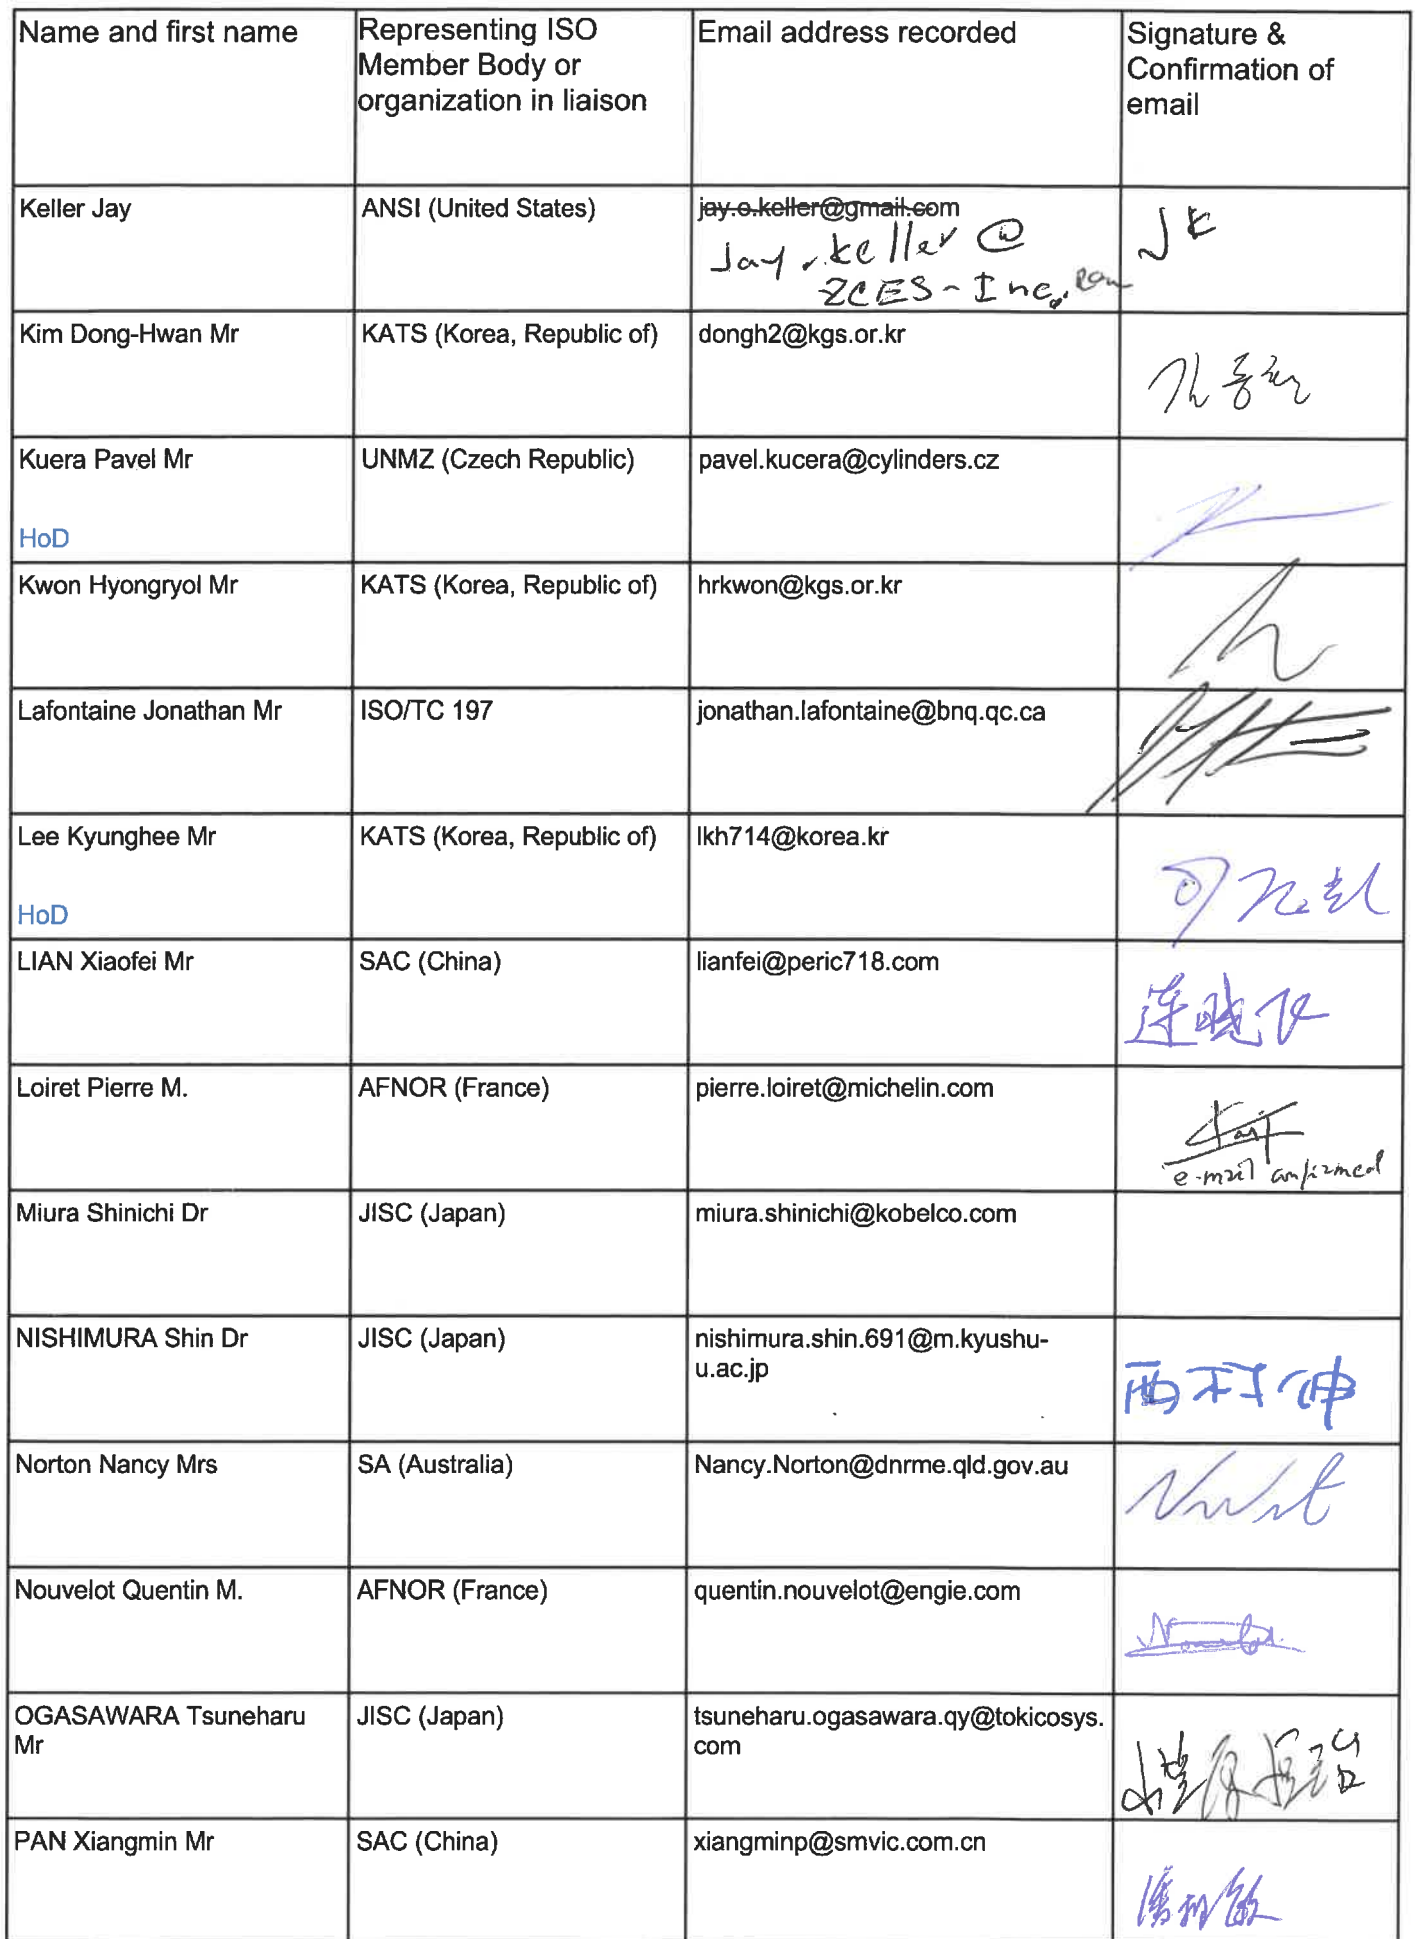 Name and first name
Representing ISO
Member Body or
organization in liaison
Email address recorded
Signature &
Confirmation of
email
Keller Jay
ANSI (United States)
jay.o.keller@gmail.com
Jay.keller@
ZCES-Inc.com
JK
Kim Dong-Hwan Mr
KATS (Korea, Republic of)
dongh2@kgs.or.kr
김동환
Kuera Pavel Mr
HoD
UNMZ (Czech Republic)
pavel.kucera@cylinders.cz
Kwon Hyongryol Mr
KATS (Korea, Republic of)
hrkwon@kgs.or.kr
Lafontaine Jonathan Mr
ISO/TC 197
jonathan.lafontaine@bnq.qc.ca
Lee Kyunghee Mr
HoD
KATS (Korea, Republic of)
lkh714@korea.kr
LIAN Xiaofei Mr
SAC (China)
lianfei@peric718.com
连晓飞
Loiret Pierre M.
AFNOR (France)
pierre.loiret@michelin.com
e-mail confirmed
Miura Shinichi Dr
JISC (Japan)
miura.shinichi@kobelco.com
NISHIMURA Shin Dr
JISC (Japan)
nishimura.shin.691@m.kyushu-
u.ac.jp
西村伸
Norton Nancy Mrs
SA (Australia)
Nancy.Norton@dnrme.qld.gov.au
Nouvelot Quentin M.
AFNOR (France)
quentin.nouvelot@engie.com
OGASAWARA Tsuneharu
Mr
JISC (Japan)
tsuneharu.ogasawara.qy@tokicosys.
com
PAN Xiangmin Mr
SAC (China)
xiangminp@smvic.com.cn